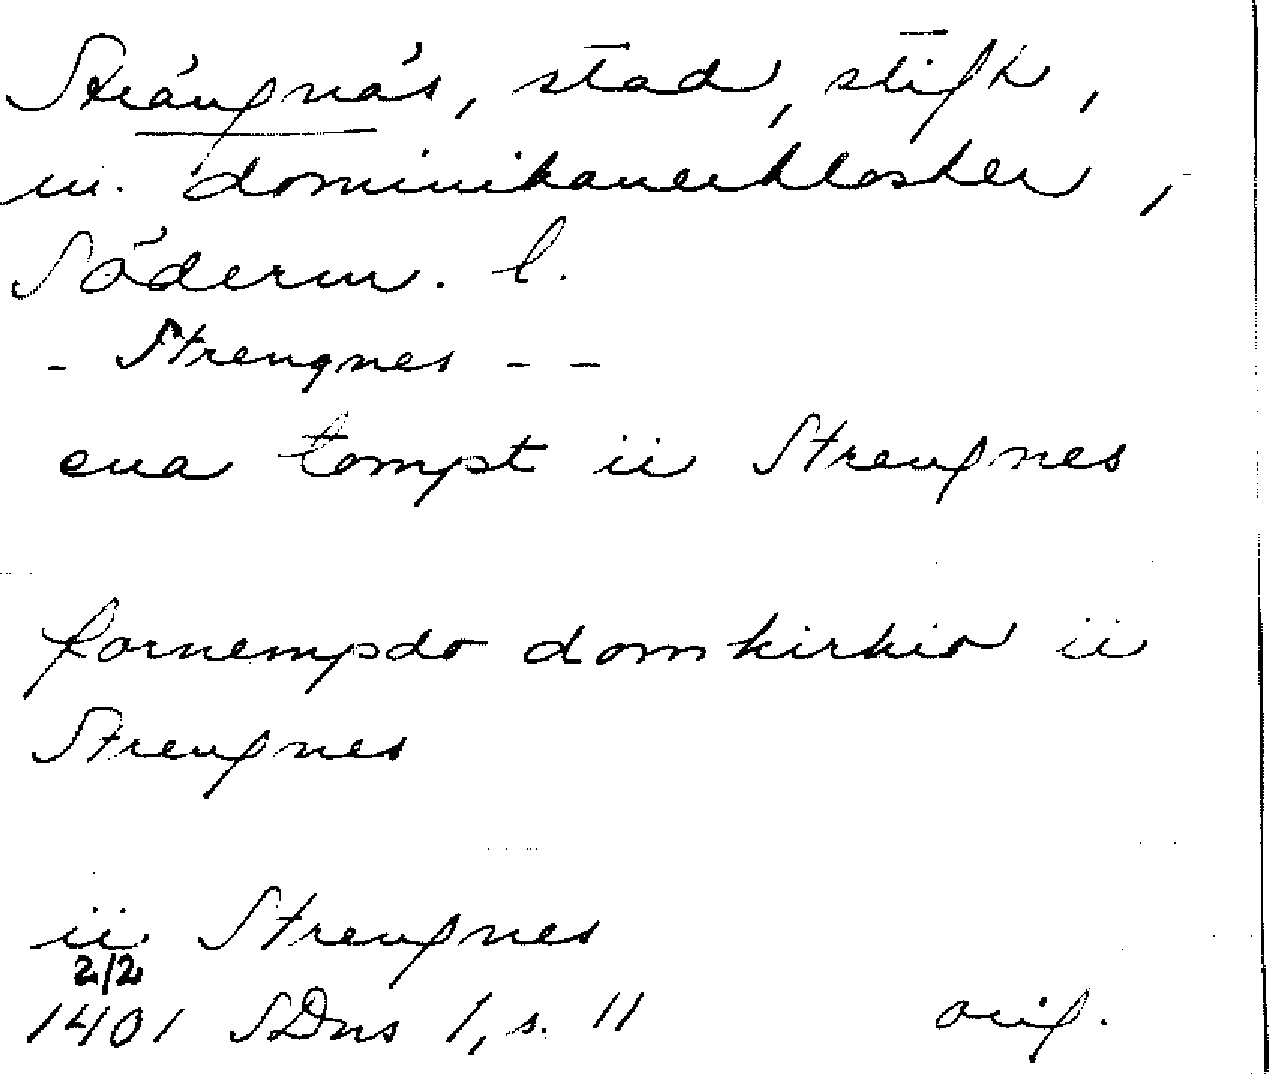 Strängnäs, stad, stift,
m. dominikanerkloster,
Söderm. l.
- Strengnes - -
ena tompt ii Strengnes
fornempdo domkirkio ii
Strengnes
ii Strengnes
2/2
1401 SDns 1, s. 11 orig.